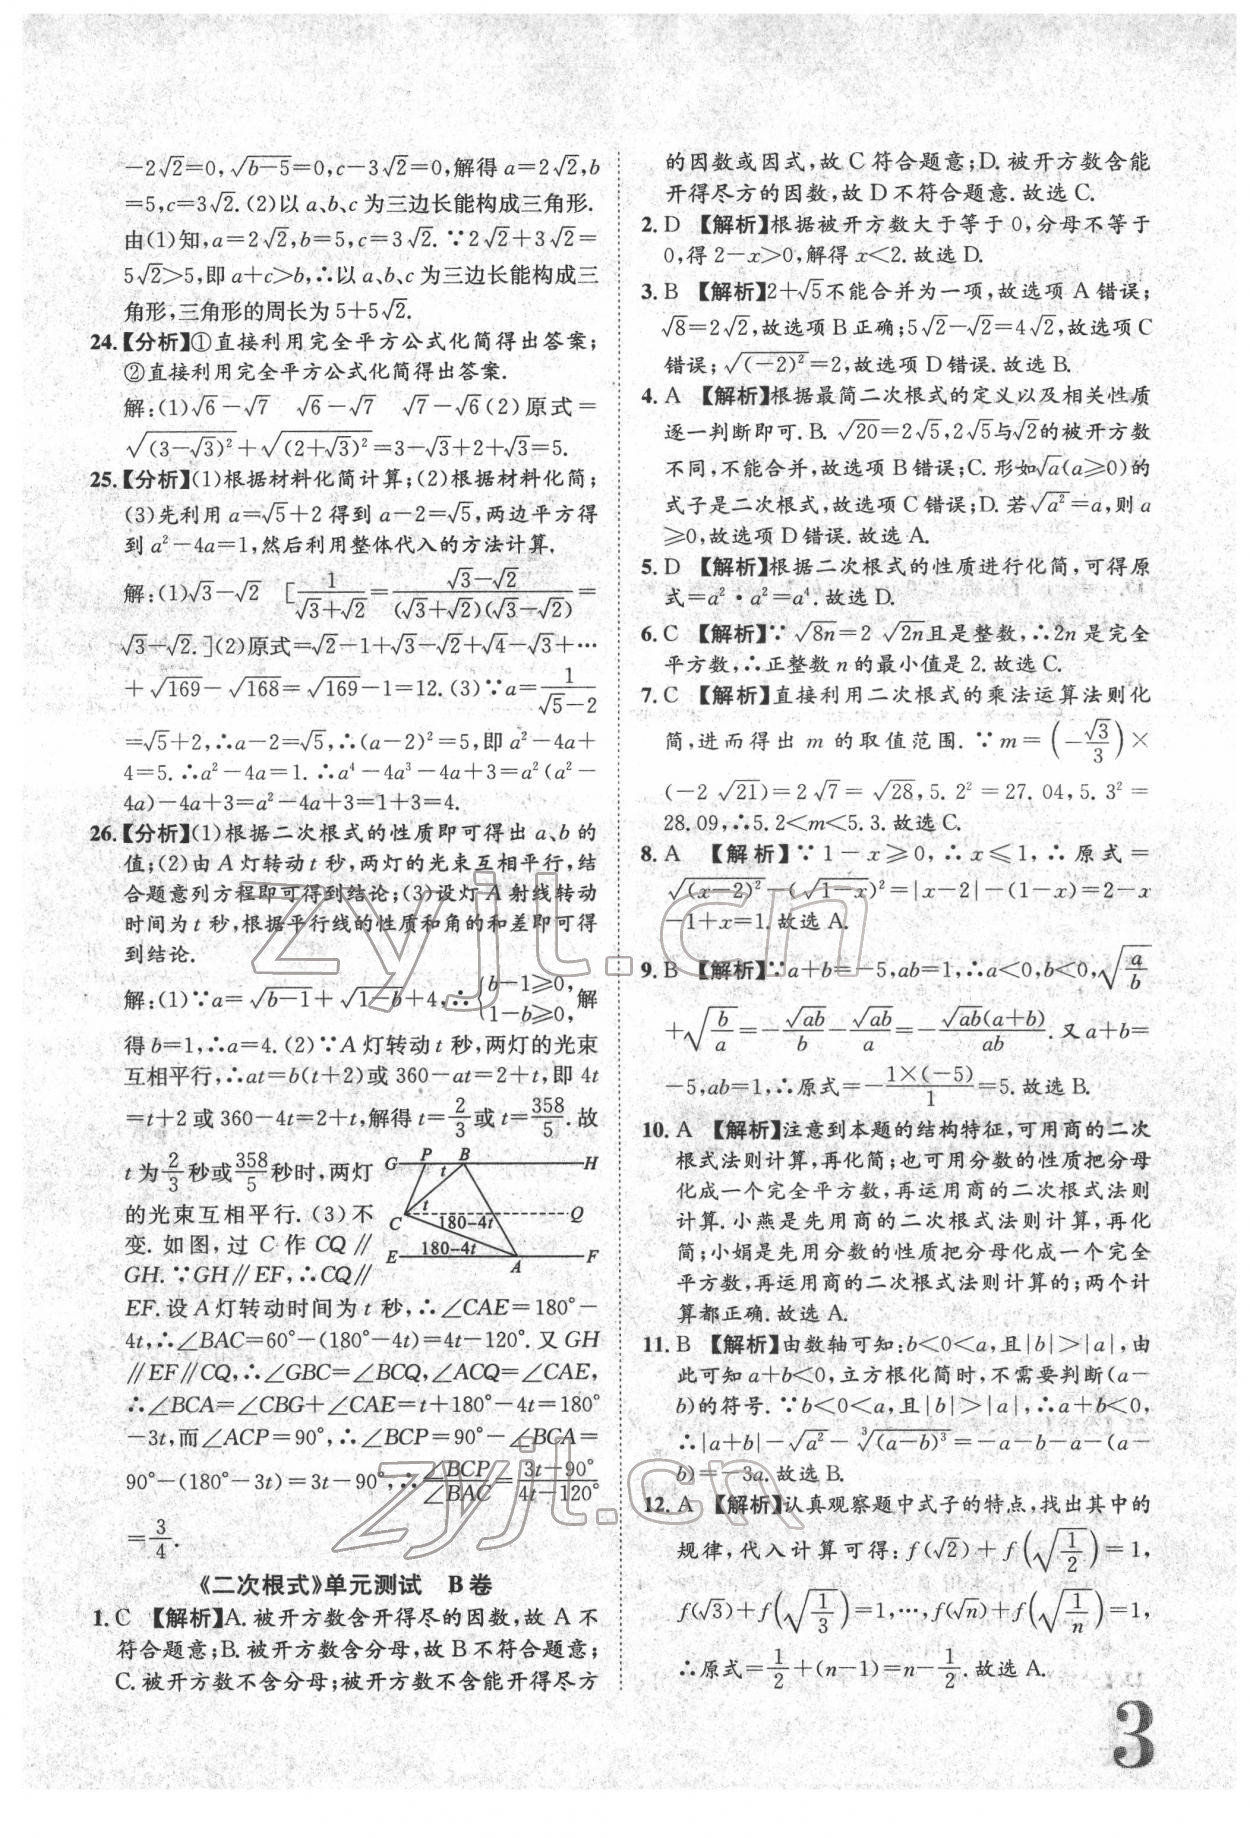 -2√2=0,√(b-5)=0,c-3√2=0,解得a=2√2,b
=5,c=3√2.(2)以a、b、c为三边长能构成三角形.
由(1)知,a=2√2,b=5,c=3√2.∵2√2+3√2=
5√2>5,即a+c>b,∴以a、b、c为三边长能构成三
角形,三角形的周长为5+5√2.
24.【分析】①直接利用完全平方公式化简得出答案;
②直接利用完全平方公式化简得出答案.
解:(1)√6-√7 √6-√7 √7-√6(2)原式=
√(3-√3)²+√(2+√3)²=3-√3+2+√3=5.
25.【分析】(1)根据材料化简计算;(2)根据材料化简;
(3)先利用a=√5+2得到a-2=√5,两边平方得
到a²-4a=1,然后利用整体代入的方法计算.
解:(1)√3-√2 [1/(√3+√2)=(√3-√2)/((√3+√2)(√3-√2))=
√3-√2.](2)原式=√2-1+√3-√2+√4-√3+…
+√169-√168=√169-1=12.(3)∵a=1/(√5-2)
=√5+2,∴a-2=√5,∴(a-2)²=5,即a²-4a+
4=5.∴a²-4a=1.∴a⁴-4a³-4a+3=a²(a²-
4a)-4a+3=a²-4a+3=1+3=4.
26.【分析】(1)根据二次根式的性质即可得出a、b的
值;(2)由A灯转动t秒,两灯的光束互相平行,结
合题意列方程即可得到结论;(3)设灯A射线转动
时间为t秒,根据平行线的性质和角的和差即可得
到结论.
解:(1)∵a=√(b-1)+√(1-b)+4,∴{b-1≥0, 1-b≥0, 解
得b=1,∴a=4.(2)∵A灯转动t秒,两灯的光束
互相平行,∴at=b(t+2)或360-at=2+t,即4t
=t+2或360-4t=2+t,解得t=2/3或t=358/5.故
t为2/3秒或358/5秒时,两灯
的光束互相平行.(3)不
变.如图,过C作CQ∥
GH.∵GH∥EF,∴CQ∥
G P B H
t
t
C 180-4t Q
E 180-4t A F
EF.设A灯转动时间为t秒,∴∠CAE=180°-
4t,∴∠BAC=60°-(180°-4t)=4t-120°.又GH
∥EF∥CQ,∴∠GBC=∠BCQ,∠ACQ=∠CAE,
∴∠BCA=∠CBG+∠CAE=t+180°-4t=180°
-3t,而∠ACP=90°,∴∠BCP=90°-∠BCA=
90°-(180°-3t)=3t-90°,∴∠BCP/∠BAC=(3t-90°)/(4t-120°)
=3/4.
《二次根式》单元测试 B卷
1.C 【解析】A.被开方数含开得尽的因数,故A不
符合题意;B.被开方数含分母,故B不符合题意;
C.被开方数不含分母;被开方数不含能开得尽方
的因数或因式,故C符合题意;D.被开方数含能
开得尽方的因数,故D不符合题意.故选C.
2.D 【解析】根据被开方数大于等于0,分母不等于
0,得2-x>0,解得x<2.故选D.
3.B 【解析】2+√5不能合并为一项,故选项A错误;
√8=2√2,故选项B正确;5√2-√2=4√2,故选项C
错误;√(-2)²=2,故选项D错误.故选B.
4.A 【解析】根据最简二次根式的定义以及相关性质
逐一判断即可.B.√20=2√5,2√5与√2的被开方数
不同,不能合并,故选项B错误;C.形如√a(a≥0)的
式子是二次根式,故选项C错误;D.若√a²=a,则a
≥0,故选项D错误.故选A.
5.D 【解析】根据二次根式的性质进行化简,可得原
式=a²·a²=a⁴.故选D.
6.C 【解析】∵√8n=2√2n且是整数,∴2n是完全
平方数,∴正整数n的最小值是2.故选C.
7.C 【解析】直接利用二次根式的乘法运算法则化
简,进而得出m的取值范围.∵m=(-√3/3)×
(-2√21)=2√7=√28,5.2²=27.04,5.3²=
28.09,∴5.2<m<5.3.故选C.
8.A 【解析】∵1-x≥0,∴x≤1,∴原式=
√(x-2)²-(√(1-x))²=|x-2|-(1-x)=2-x
-1+x=1.故选A.
9.B 【解析】∵a+b=-5,ab=1,∴a<0,b<0,√(a/b)
+√(b/a)=-√ab/b-√ab/a=-√ab(a+b)/ab.又a+b=
-5,ab=1,∴原式=-1×(-5)/1=5.故选B.
10.A 【解析】注意到本题的结构特征,可用商的二次
根式法则计算,再化简;也可用分数的性质把分母
化成一个完全平方数,再运用商的二次根式法则
计算.小燕是先用商的二次根式法则计算,再化
简;小娟是先用分数的性质把分母化成一个完全
平方数,再运用商的二次根式法则计算的;两个计
算都正确.故选A.
11.B 【解析】由数轴可知:b<0<a,且|b|>|a|,由
此可知a+b<0,立方根化简时,不需要判断(a-
b)的符号.∵b<0<a,且|b|>|a|,∴a+b<0,
∴|a+b|-√a²-∛(a-b)³=-a-b-a-(a-
b)=-3a.故选B.
12.A 【解析】认真观察题中式子的特点,找出其中的
规律,代入计算可得:f(√2)+f(√(1/2))=1,
f(√3)+f(√(1/3))=1,…,f(√n)+f(√(1/n))=1,
∴原式=1/2+(n-1)=n-1/2.故选A.
3
zyjl.cn
zyjl.cn